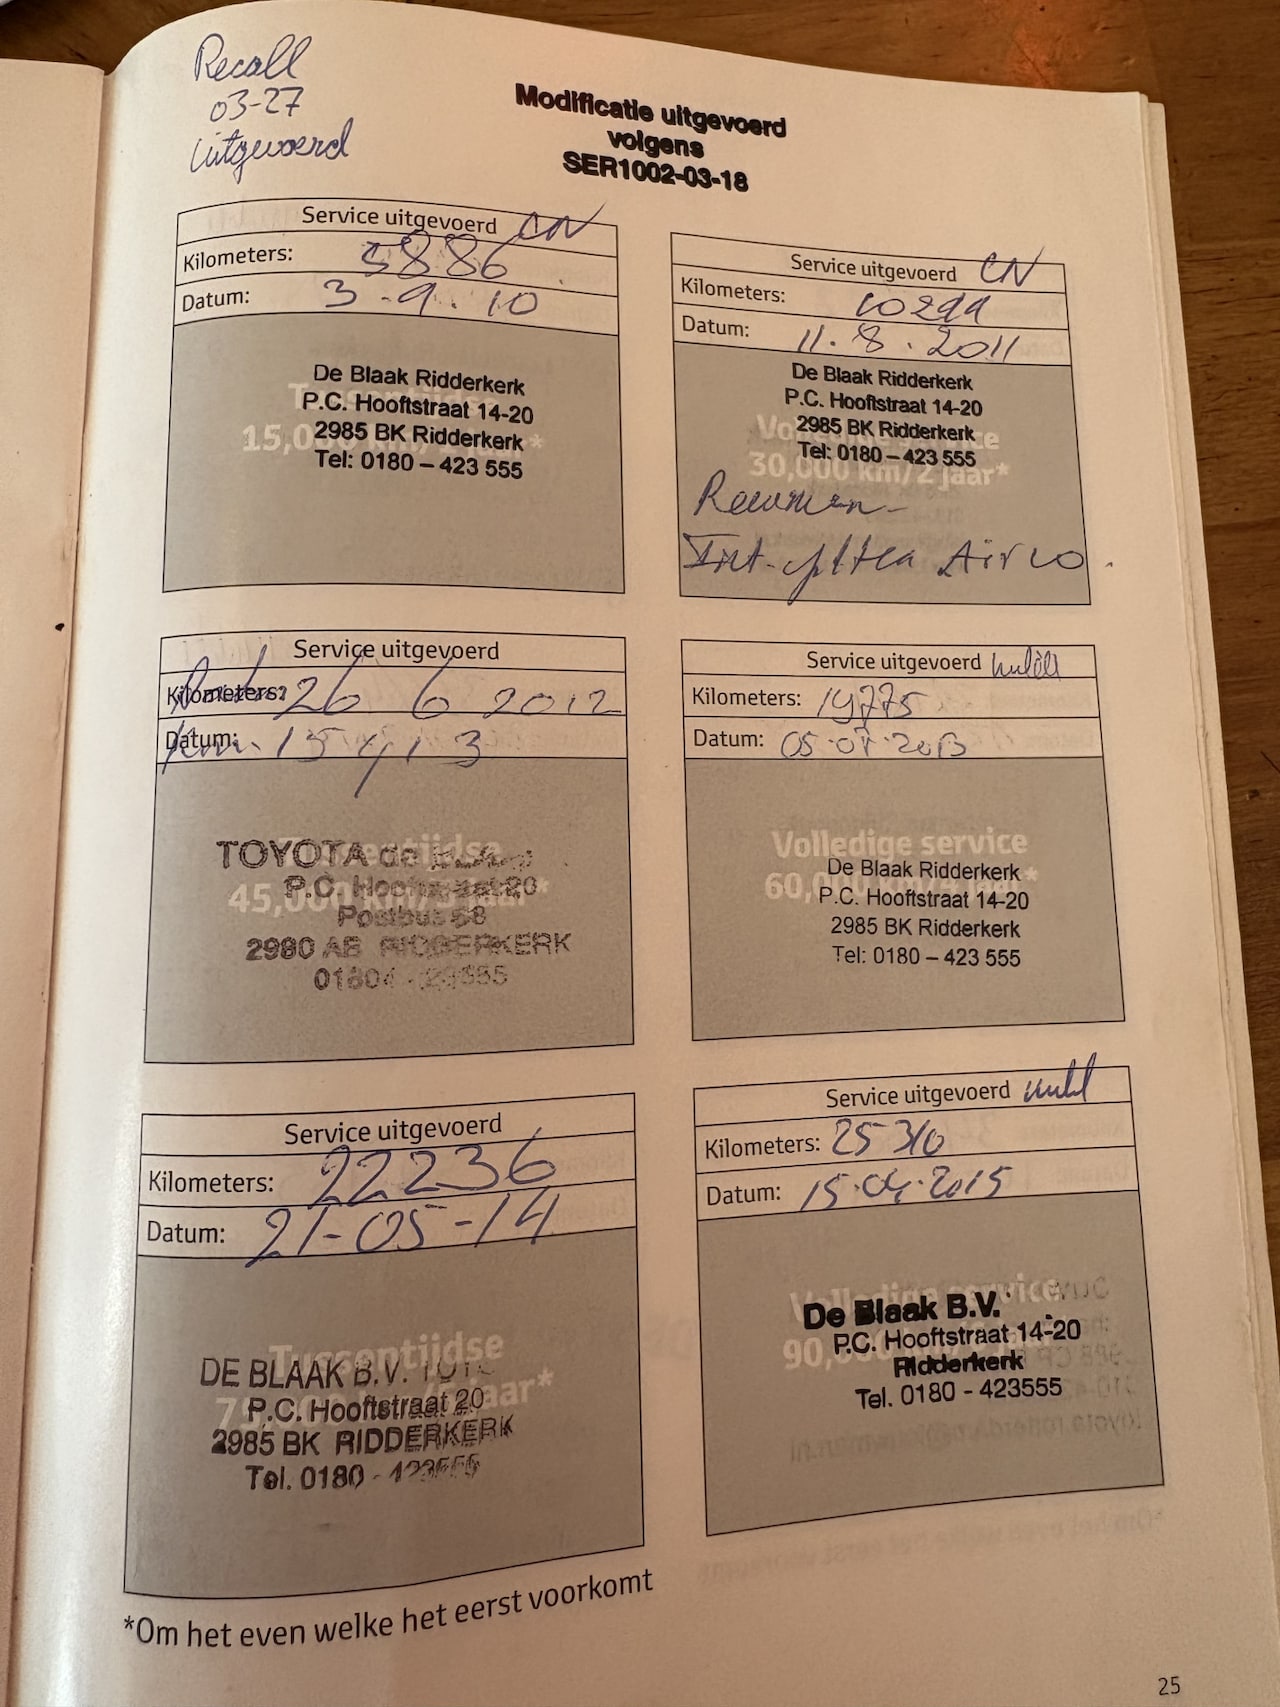 Recall
03-27
uitgevoerd
Modificatie uitgevoerd
volgens
SER1002-03-18
Service uitgevoerd CN
Kilometers: 5886
Datum: 3-9-10
Tussentijdse
15,000 km/1 jaar*
De Blaak Ridderkerk
P.C. Hooftstraat 14-20
2985 BK Ridderkerk
Tel: 0180 – 423 555
Service uitgevoerd CN
Kilometers:
Datum: 11.8.2011
Volledige service
30,000 km/2 jaar*
De Blaak Ridderkerk
P.C. Hooftstraat 14-20
2985 BK Ridderkerk
Tel: 0180 – 423 555
Int. Airco
Service uitgevoerd
Kilometers: 26 6 2012
Datum:
Tussentijdse
45,000 km/3 jaar*
TOYOTA de
P.C.
Postbus 68
2980 AB RIDDERKERK
Service uitgevoerd
Kilometers: 19775
Datum: 05-07-2013
Volledige service
60,000 km/4 jaar*
De Blaak Ridderkerk
P.C. Hooftstraat 14-20
2985 BK Ridderkerk
Tel: 0180 – 423 555
Service uitgevoerd
Kilometers: 22236
Datum: 21-05-14
Tussentijdse
jaar*
DE BLAAK B.V.
P.C. Hooftstraat 20
2985 BK RIDDERKERK
Tel. 0180 - 423555
Service uitgevoerd
Kilometers: 25310
Datum: 15-04-2015
Volledige service
90,000
De Blaak B.V.
P.C. Hooftstraat 14-20
Ridderkerk
Tel. 0180 - 423555
*Om het even welke het eerst voorkomt
25